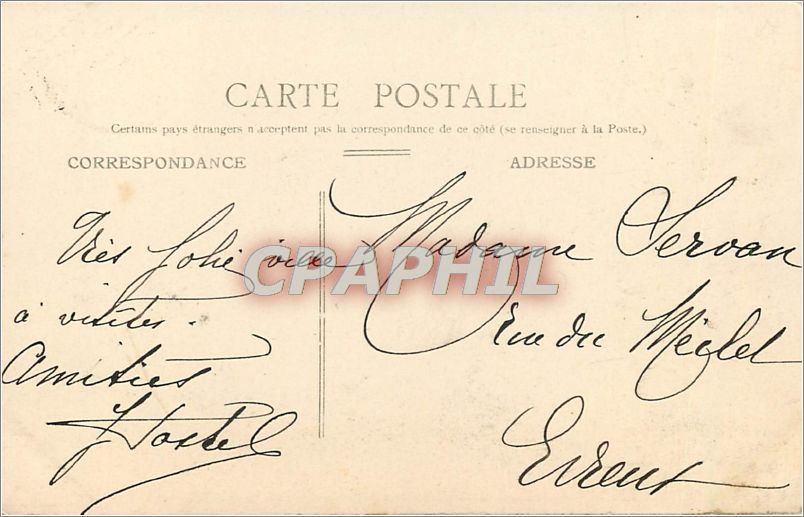 CARTE POSTALE
Certains pays étrangers n'acceptent pas la correspondance de ce côté (se renseigner à la Poste.)
CORRESPONDANCE
ADRESSE
Très Jolie ville
à visiter.
Amitiés
Madame Servan
rue du
Evreux
CPAPHIL